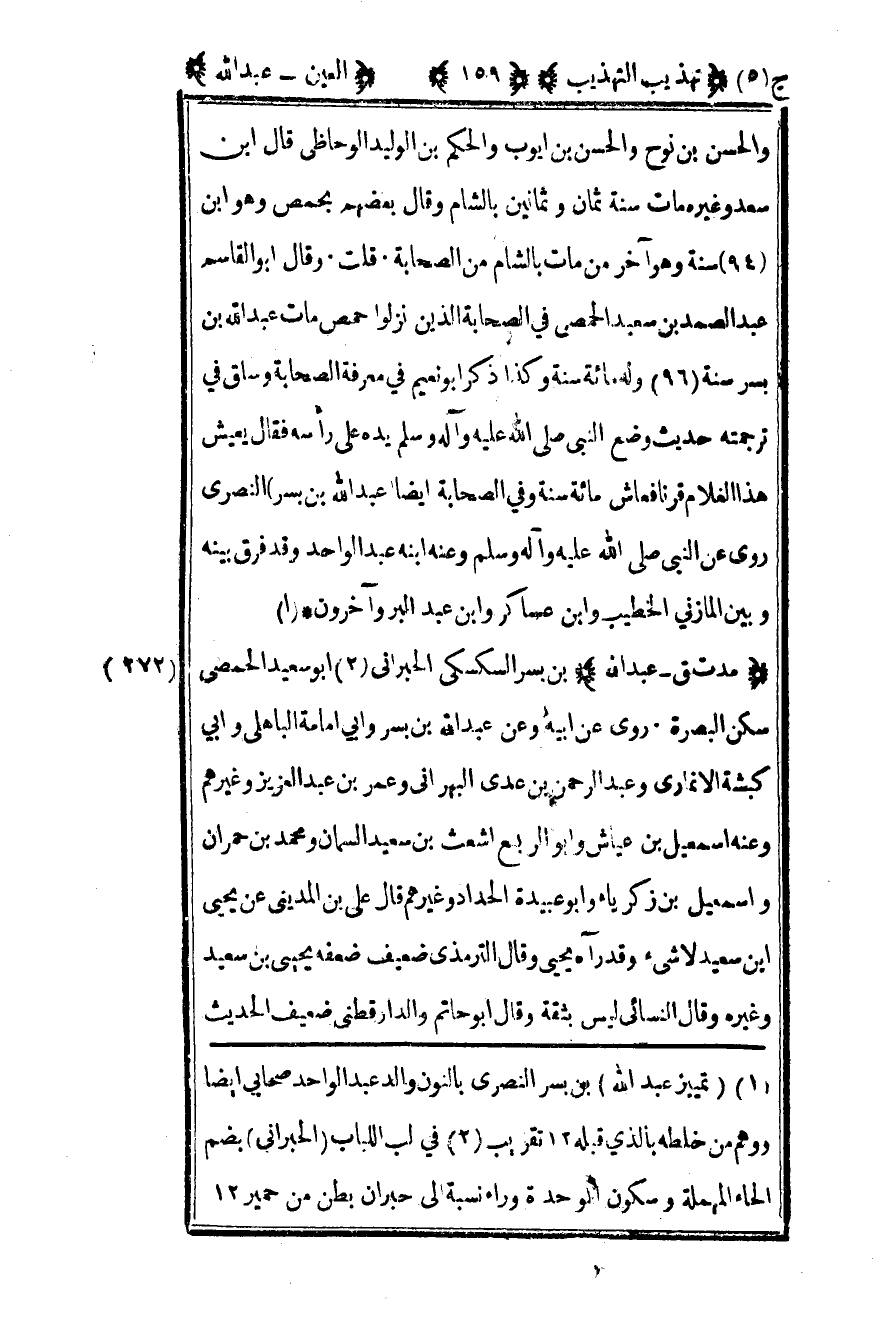 ج (٥) ﴿ تهذيب التهذيب ﴾ ﴿ ١٥٩ ﴾ ﴿ العين - عبدالله ﴾
والحسن بن نوح والحسن بن ايوب والحكم بن الوليد الوحاظى قال ابن
سعد وغيره مات سنة ثمان و ثمانين بالشام وقال بعضهم بحمص وهو ابن
(٩٤) سنة وهو آخر من مات بالشام من الصحابة ٠ قلت ٠ وقال ابو القاسم
عبد الصمد بن سعيد الحمصى في الصحابة الذين نزلوا حمص مات عبدالله بن
بسر سنة (٩٦) وله مائة سنة وكذا ذكر ابو نعيم في معرفة الصحابة وساق في
ترجمته حديث وضع النبى صلى الله عليه وآله وسلم يده على رأسه فقال يعيش
هذا الغلام قرنا فعاش مائة سنة وفي الصحابة ايضا (عبد الله بن بسر) النصرى
روى عن النبى صلى الله عليه وآله وسلم وعنه ابنه عبد الواحد وقد فرق بينه
و بين المازني الخطيب وابن عساكر وابن عبد البر وآخرون * (١)
﴿ مدت ق - عبدالله ﴾ بن بسر السكسكى الحبرانى (٢) ابو سعيد الحمصى (٢٧٢)
سكن البصرة ٠ روى عن ابيه وعن عبدالله بن بسر وابي امامة الباهلى و ابي
كبشة الانمارى وعبد الرحمن بن عدى البهرانى وعمر بن عبد العزيز وغيرهم
وعنه اسمعيل بن عياش وابو الربيع اشعث بن سعيد السمان ومحمد بن حمران
و اسمعيل بن زكرياء وابو عبيدة الحداد وغيرهم قال على بن المدينى عن يحيى
ابن سعيد لاشىء وقد رآه يحيى وقال الترمذى ضعيف ضعفه يحيى بن سعيد
وغيره وقال النسائى ليس بثقة وقال ابو حاتم والدار قطنى ضعيف الحديث
(١) ( تمييز عبد الله ) بن بسر النصرى بالنون والد عبد الواحد صحابي ايضا
ووهم من خلطه بالذي قبله ١٢ تقريب (٢) في لب اللباب (الحبرانى) بضم
الحاء المهملة و سكون الموحدة وراء نسبة الى حبران بطن من حمير ١٢